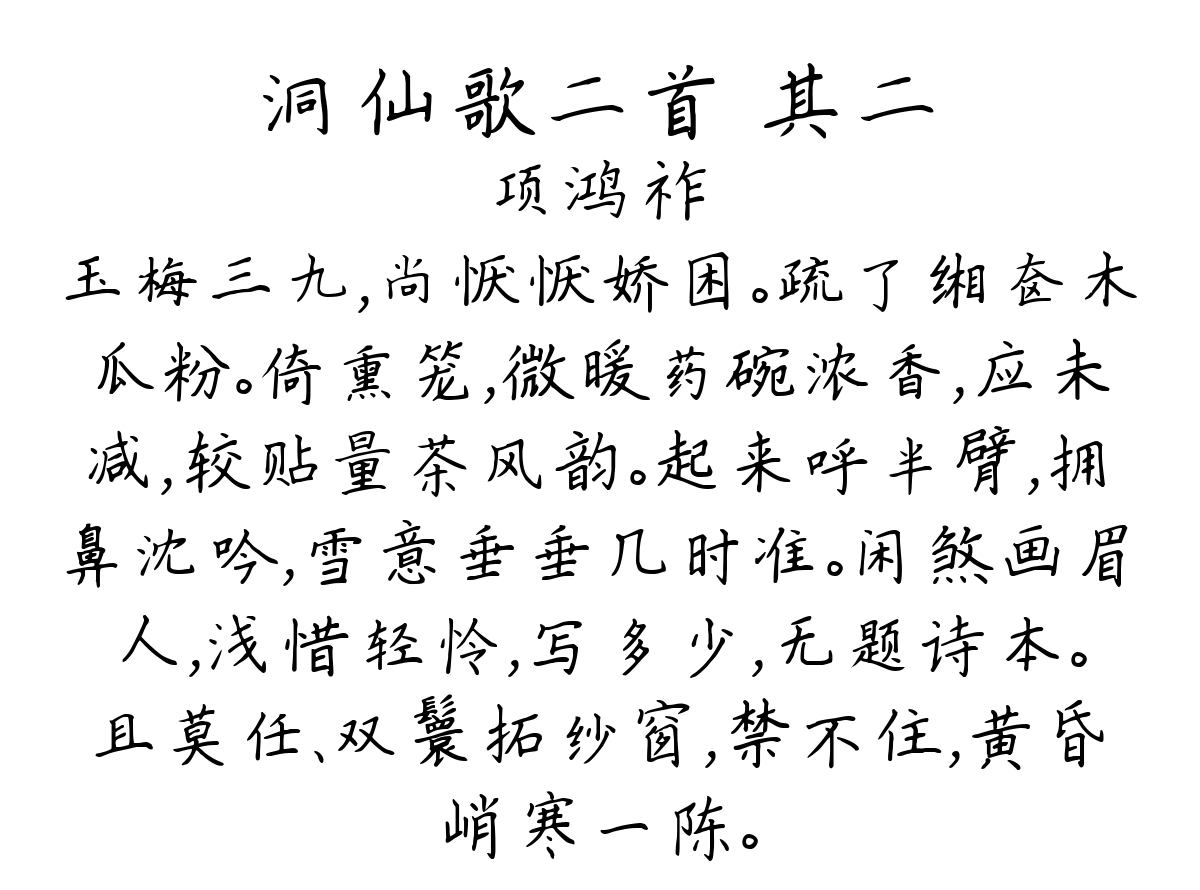 洞仙歌二首 其二
项鸿祚
玉梅三九,尚恹恹娇困。疏了缃奁木
瓜粉。倚熏笼,微暖药碗浓香,应未
减,较贴量茶风韵。起来呼半臂,拥
鼻沈吟,雪意垂垂几时准。闲煞画眉
人,浅惜轻怜,写多少,无题诗本。
且莫任、双鬟拓纱窗,禁不住,黄昏
峭寒一陈。